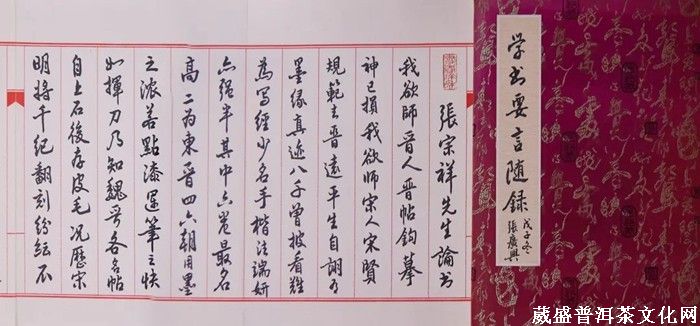 学书要言随录
戊子冬
張廣興
張宗祥先生論书
我欲師晋人晋帖鉤摹
神已損我欲師宋人宋賢
規範去晋遠平生自詡有
墨缘真迹八千曾披看雖
為寫經少名手楷法端妍
亦强半其中六卷最名
高二为東晋四六朝用墨
之浓若點漆運筆之快
如揮刀乃知魏晋各名帖
自上石後存皮毛况歷宋
明將千纪翻刻纷纭不
葳盛普洱茶文化网